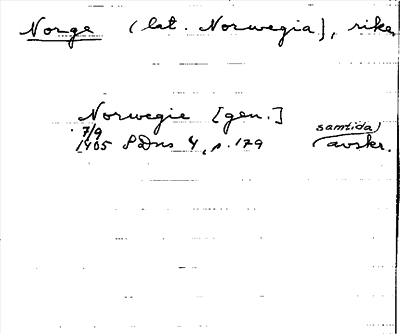 Norge (lat. Norwegia), rike
Norwegie [gen.]
7/9 samtida
1405 SDns 4, s. 179 (avskr.)